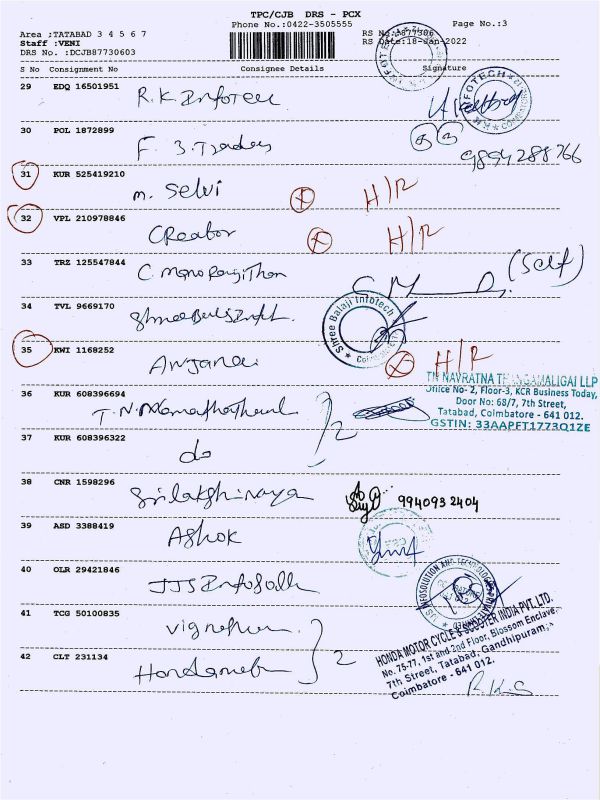 TPC/CJB DRS - PCX
Phone No.:0422-3505555
Page No.:3
Area ;TATABAD 3 4 5 6 7
Staff :VENI
DRS No. :DCJB87730603
RS Date:18-Jan-2022
S No Consignment No Consignee Details Signature
29 EDQ 16501951 R.K. Infotech
30 POL 1872899 F 3 Traders
9894288766
31 KUR 525419210 M. Selvi H/R
32 VPL 210978846 Creator H/R
33 TRZ 125547844 C. Manoranjithan (Self)
34 TVL 9669170
Shree Balaji Infotech
35 KWI 1168252 Anjana H/R
TN NAVRATNA
Office No- 2, Floor-3, KCR Business Today,
Door No: 68/7, 7th Street,
Tatabad, Coimbatore - 641 012.
GSTIN: 33AAPFT1773Q1ZE
36 KUR 608396694 T.N. 2
37 KUR 608396322 do
38 CNR 1598296 9940932404
39 ASD 3388419 Ashok
40 OLR 29421846 JJS
41 TCG 50100835
HONDA MOTOR CYCLE & SCOOTER INDIA PVT. LTD.
No. 75-77, 1st and 2nd Floor, Blossom Enclave,
7th Street, Tatabad, Gandhipuram,
Coimbatore - 641 012.
42 CLT 231134 2